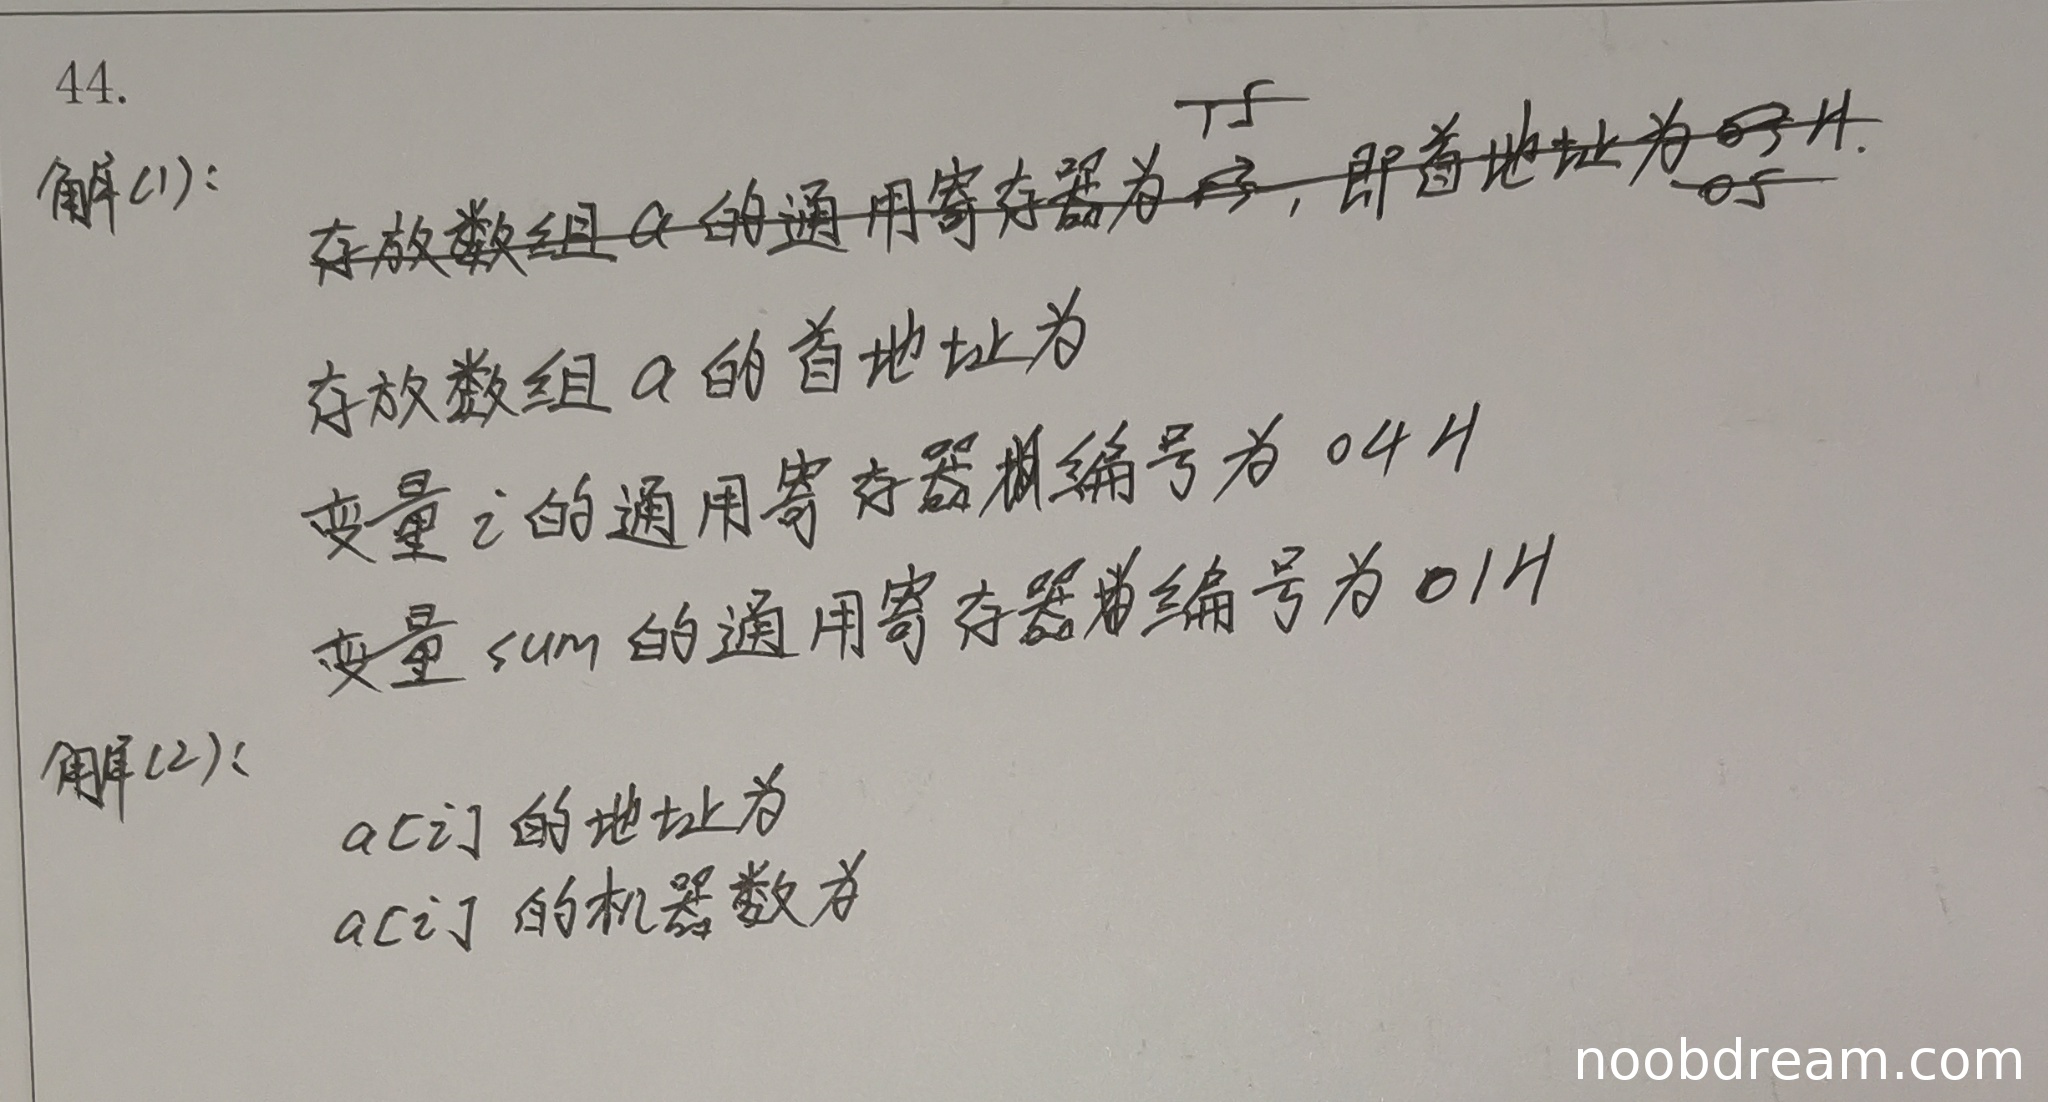 44.
解(1):
存放数组a的通用寄存器为 , 即首地址为 H.
05
存放数组a的首地址为
变量i的通用寄存器编号为 04H
变量sum的通用寄存器编号为 01H
解(2):
a[i] 的地址为
a[i] 的机器数为
noobdream.com